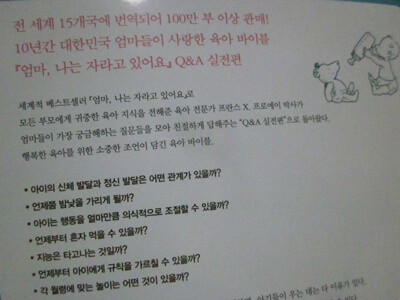 전 세계 15개국에 번역되어 100만 부 이상 판매!
10년간 대한민국 엄마들이 사랑한 육아 바이블
『엄마, 나는 자라고 있어요』 Q&A 실전편
세계적 베스트셀러 『엄마, 나는 자라고 있어요』로
모든 부모에게 귀중한 육아 지식을 전해준 육아 전문가 프란스 X. 프로에이 박사가
엄마들이 가장 궁금해하는 질문들을 모아 친절하게 답해주는 "Q&A 실전편"으로 돌아왔다.
행복한 육아를 위한 소중한 조언이 담긴 육아 바이블.
• 아이의 신체 발달과 정신 발달은 어떤 관계가 있을까?
• 언제쯤 밤낮을 가리게 될까?
• 아기는 행동을 얼마만큼 의식적으로 조절할 수 있을까?
• 언제부터 혼자 먹을 수 있을까?
• 지능은 타고나는 것일까?
• 언제부터 아이에게 규칙을 가르칠 수 있을까?
• 각 월령에 맞는 놀이는 어떤 것이 있을까?
아기들이 우는 데는 다 이유가 있다.